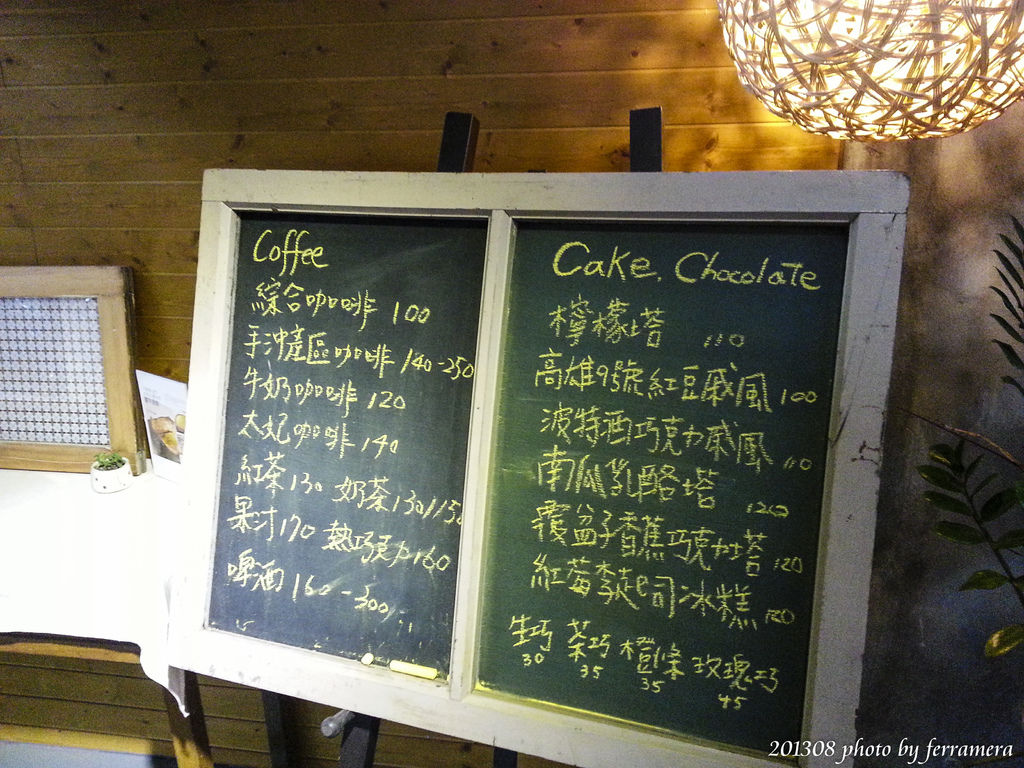 Coffee
綜合咖啡 100
手沖產區咖啡 140-250
牛奶咖啡 120
太妃咖啡 140
紅茶 130 奶茶 130/150
果汁 170 熱巧克力 160
啤酒 160-300
Cake, Chocolate
檸檬塔 110
高雄9號紅豆戚風 100
波特酒巧克力戚風 110
南瓜乳酪塔 120
覆盆子香蕉巧克力塔 120
紅莓李起司冰糕 120
牛巧 茶巧 橙條 玫瑰巧
30 35 35 45
201308 photo by ferramera